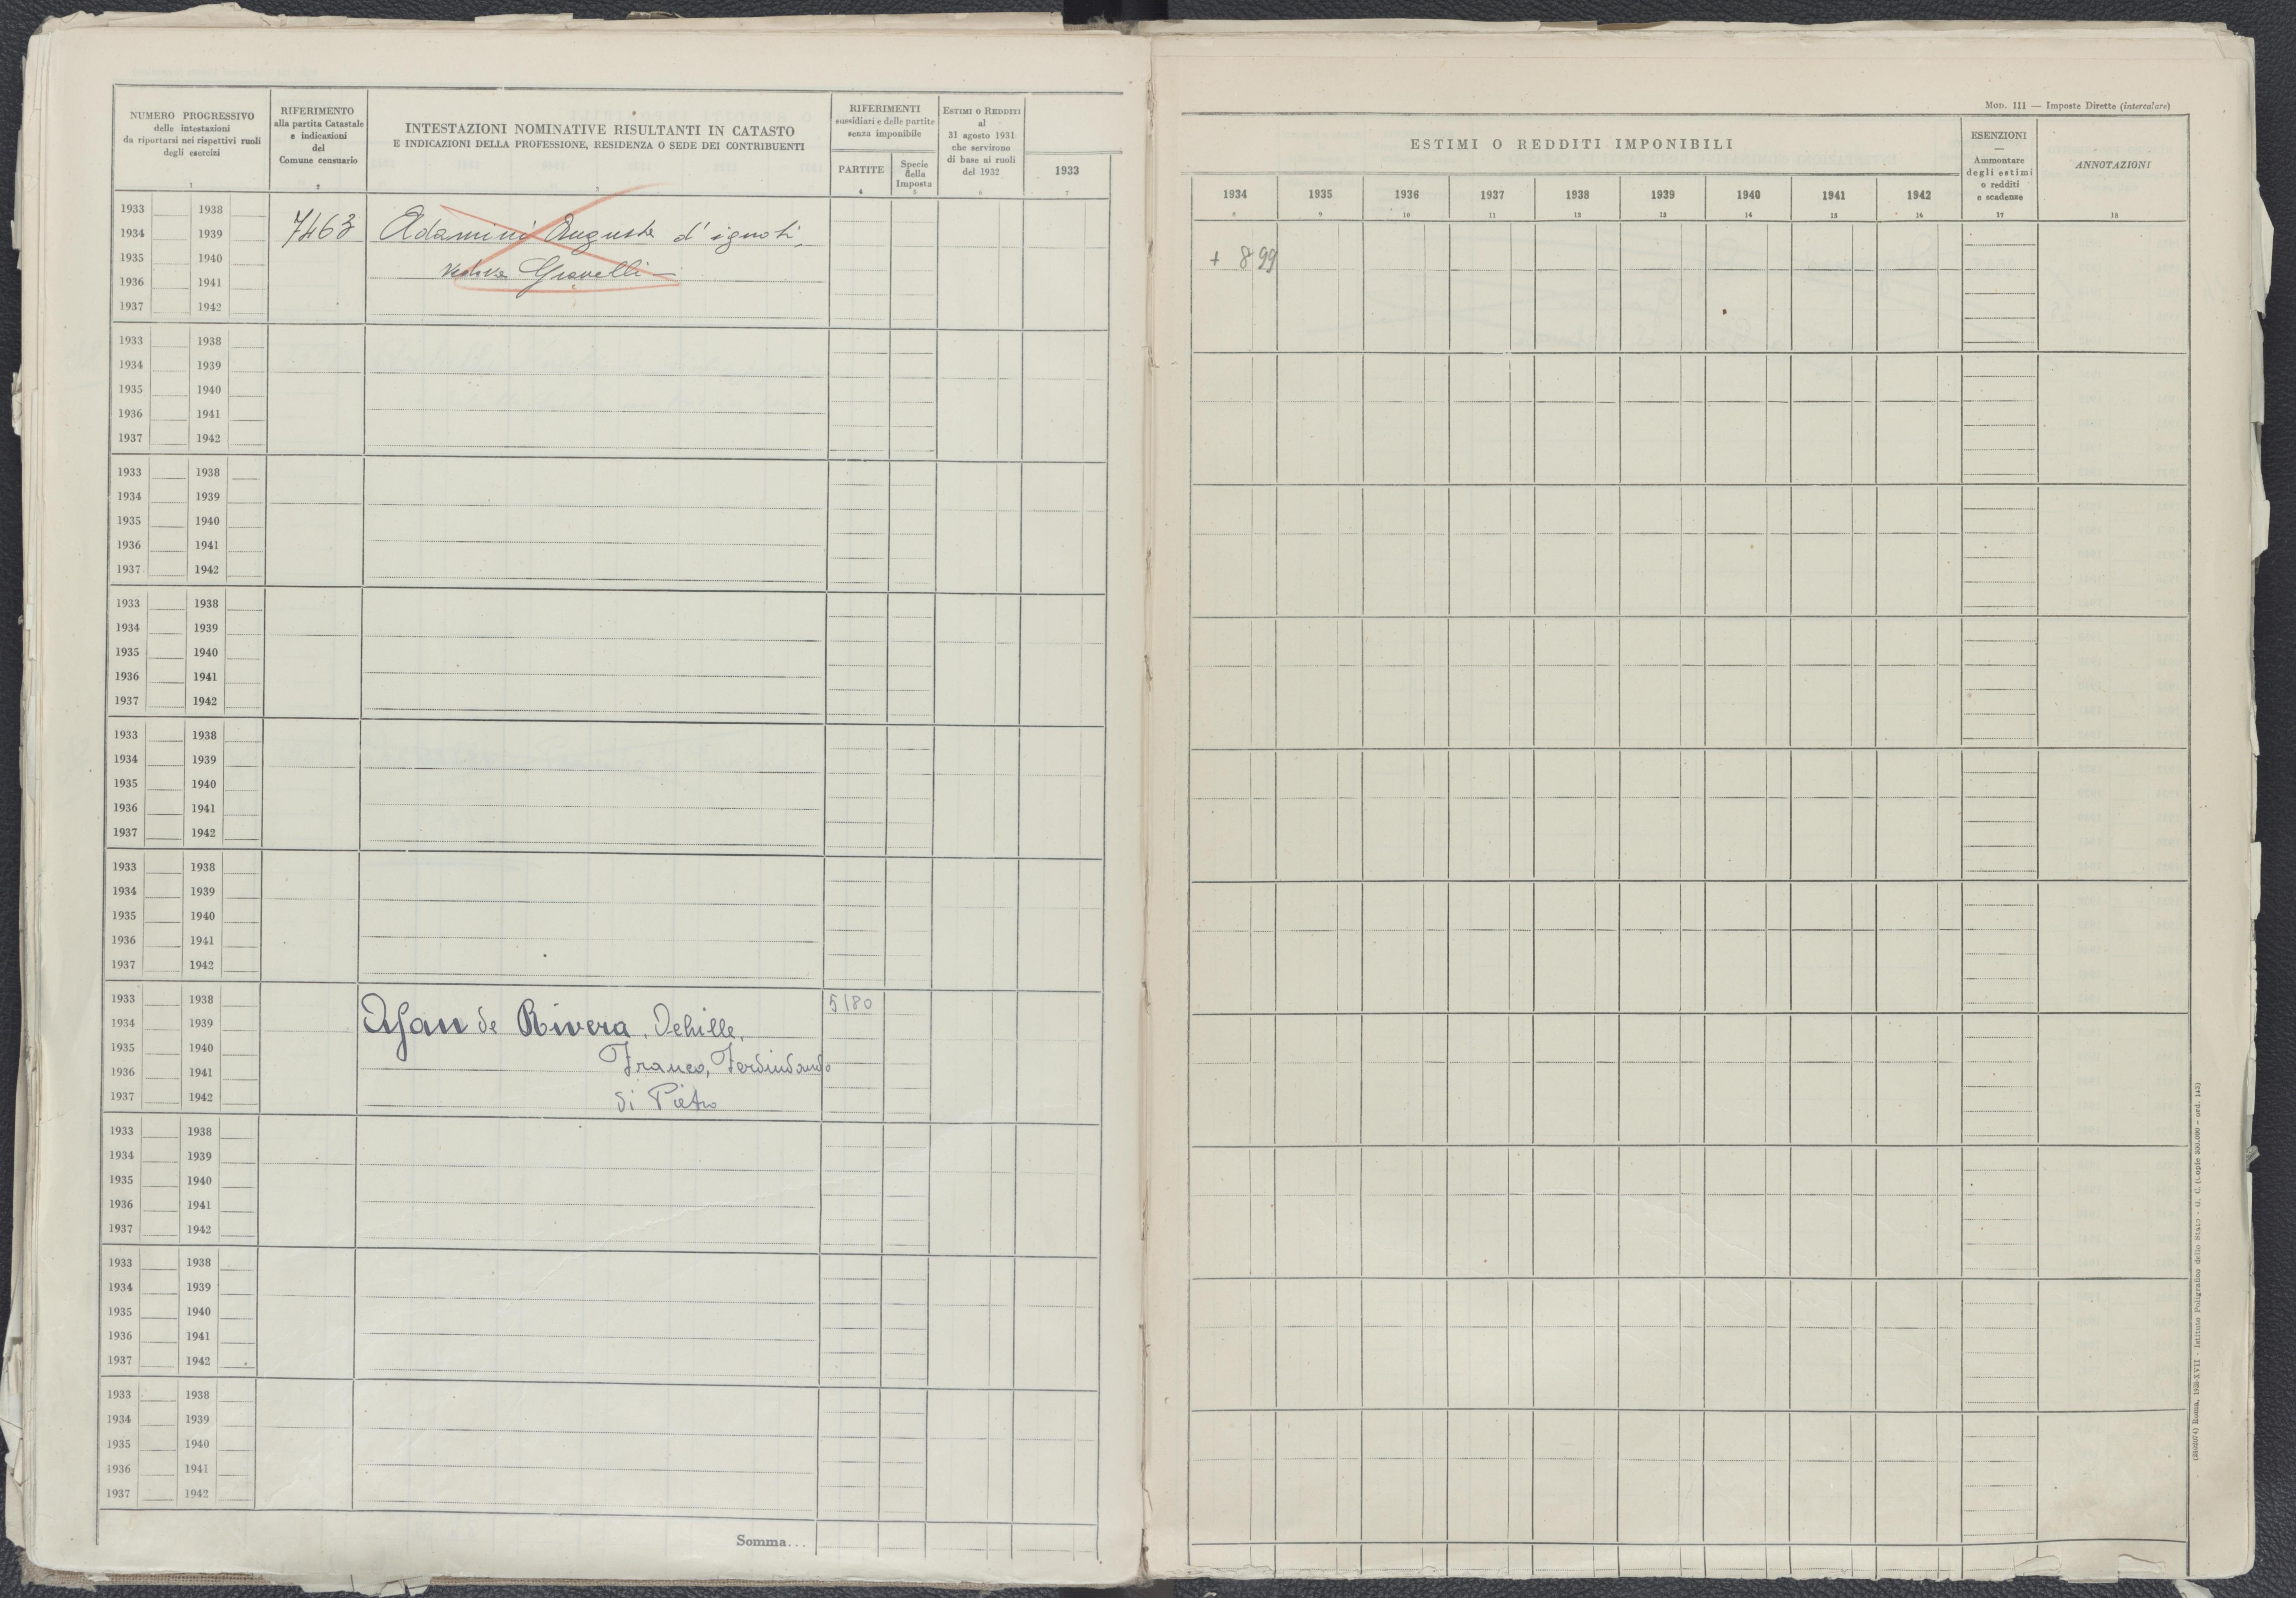 NUMERO PROGRESSIVO
delle intestazioni
da riportarsi nei rispettivi ruoli
degli esercizi
1
RIFERIMENTO
alla partita Catastale
e indicazioni
del
Comune censuario
2
INTESTAZIONI NOMINATIVE RISULTANTI IN CATASTO
E INDICAZIONI DELLA PROFESSIONE, RESIDENZA O SEDE DEI CONTRIBUENTI
3
RIFERIMENTI
sussidiari e delle partite
senza imponibile
PARTITE
4
Specie
della
Imposta
5
ESTIMI O REDDITI
al
31 agosto 1931
che servirono
di base ai ruoli
del 1932
6
1933
7
1933 1938
1934 1939
1935 1940
1936 1941
1937 1942
7463
Adamini Augusta d'ignoti,
vedova Gravelli
1933 1938
1934 1939
1935 1940
1936 1941
1937 1942
1933 1938
1934 1939
1935 1940
1936 1941
1937 1942
1933 1938
1934 1939
1935 1940
1936 1941
1937 1942
1933 1938
1934 1939
1935 1940
1936 1941
1937 1942
1933 1938
1934 1939
1935 1940
1936 1941
1937 1942
1933 1938
1934 1939
1935 1940
1936 1941
1937 1942
de Rivera, Achille,
Franco, Ferdinando
di Pietro
5180
1933 1938
1934 1939
1935 1940
1936 1941
1937 1942
1933 1938
1934 1939
1935 1940
1936 1941
1937 1942
1933 1938
1934 1939
1935 1940
1936 1941
1937 1942
Somma...
MOD. 111 — Imposte Dirette (intercalare)
ESTIMI O REDDITI IMPONIBILI
1934 1935 1936 1937 1938 1939 1940 1941 1942
8 9 10 11 12 13 14 15 16
ESENZIONI
—
Ammontare
degli estimi
o redditi
e scadenze
17
ANNOTAZIONI
18
+ 8 99
Roma, 1939-XVII - Istituto Poligrafico dello Stato - G. C. (Copie 350.000 - ord. 143)